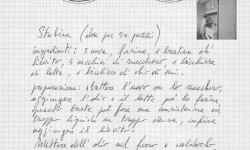 Stubina (dose per 50 pezzi)
ingredienti: 3 uova, farina, 1 bustina di
lievito, 3 cucchiai di zucchero, 1 bicchiere
di latte, 1 bicchiere di olio di semi.
preparazione: sbattere l'uovo con lo zucchero,
aggiungere l'olio e il latte poi la farina
questo basta può fare una consistenza né
troppo liquida né troppo densa, infine
aggiungo il lievito.
Mettere dell'olio nel ferro e scaldarlo